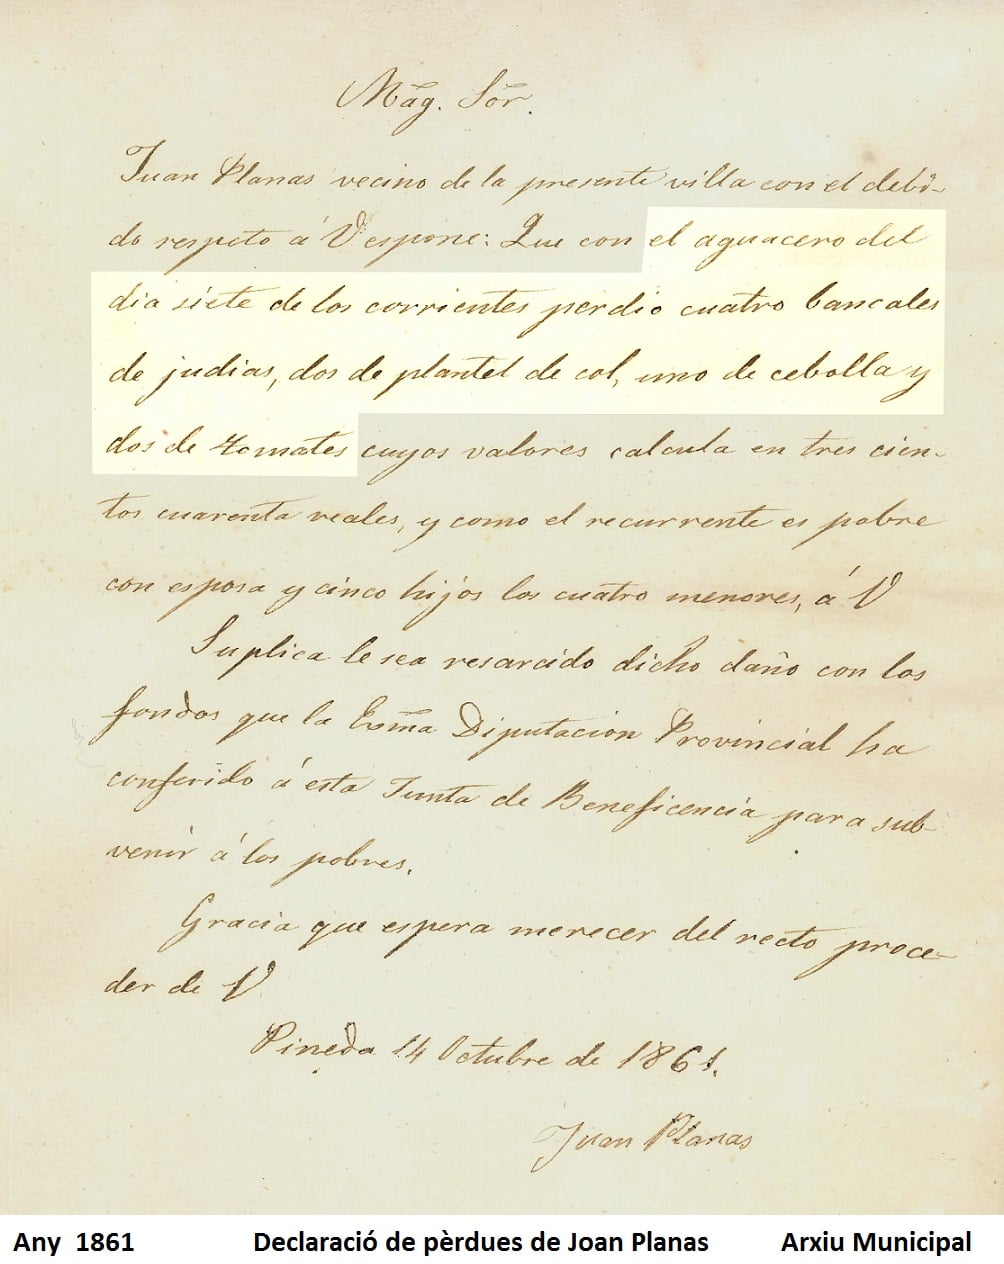 Mag. Sor.
Juan Planas vecino de la presente villa con el debi-
do respeto á V espone: Que con el aguacero del
dia siete de los corrientes perdio cuatro bancales
de judias, dos de plantel de col, uno de cebolla y
dos de tomates cuyos valores calcula en tres cien-
tos cuarenta reales, y como el recurrente es pobre
con esposa y cinco hijos los cuatro menores, á V
Suplica le sea resarcido dicho daño con los
fondos que la Exma Diputacion Provincial ha
conferido á esta Junta de Beneficencia para sub-
venir á los pobres.
Gracia que espera merecer del recto proce-
der de V
Pineda 14 Octubre de 1861.
Juan Planas
Any 1861 Declaració de pèrdues de Joan Planas Arxiu Municipal